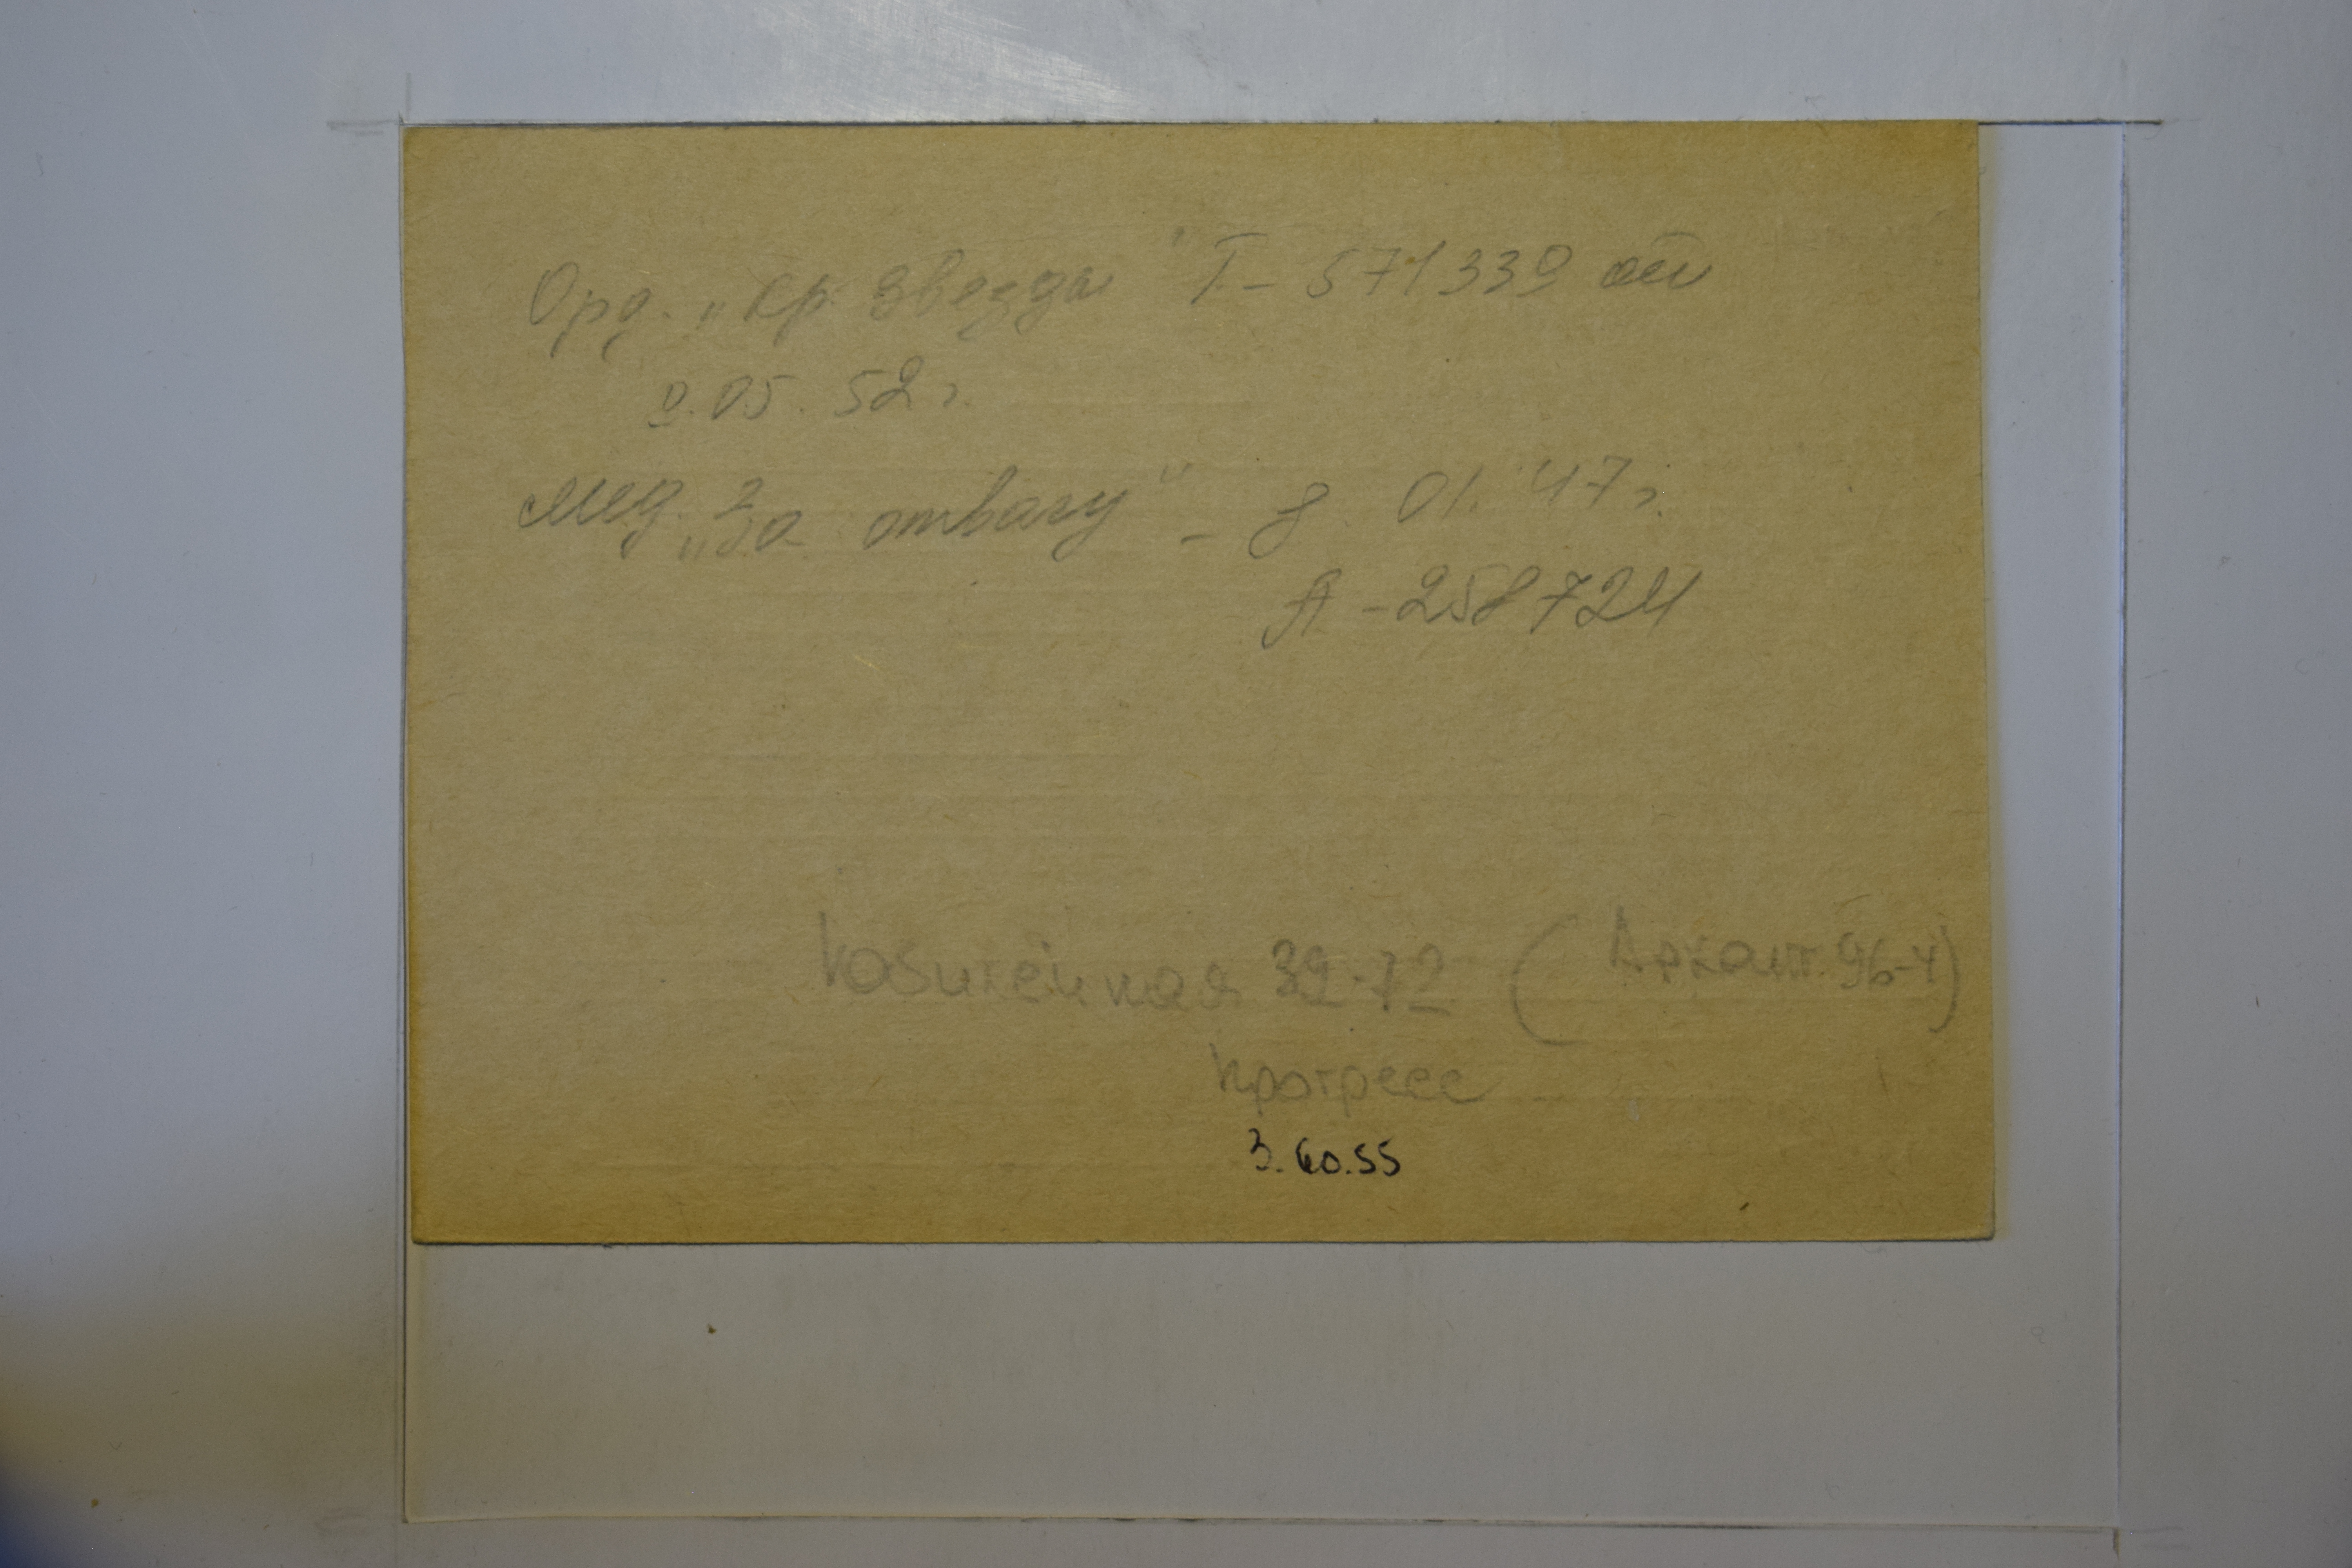 Орд. „Кр. Звезда" Т-571330 от
0.05.52 г.
Мед. „За отвагу" - 8.01.47 г.
А-258724
32-72 (Арханг. 96-4)
Прогресс
3.60.55